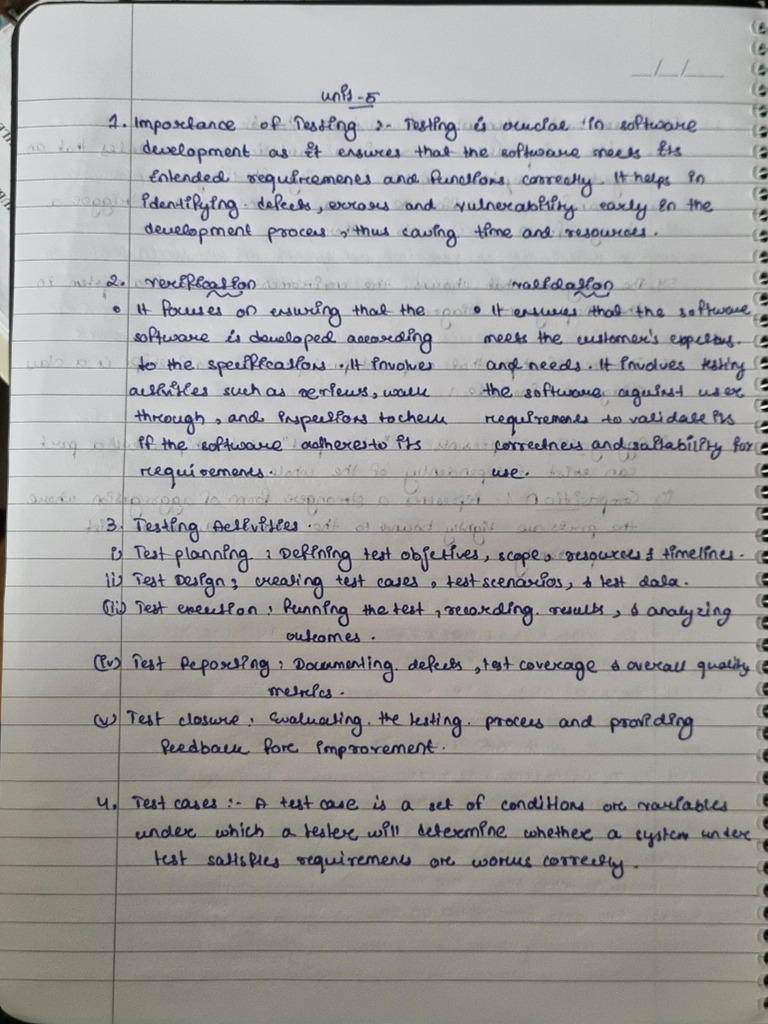 Unit-5
1. Importance of Testing :- Testing is crucial in software
development as it ensures that the software meets its
intended requirements and functions correctly. It helps in
identifying defects, errors and vulnerability early in the
development process, thus saving time and resources.
2. verification
• It focuses on ensuring that the
software is developed according
to the specifications. It involves
activities such as reviews, walk
through, and inspections to check
if the software adheres to its
requirements.
validation
• It ensures that the software
meets the customer's expectns.
and needs. It involves testing
the software against user
requirements to validate its
correctness and suitability for
use.
3. Testing Activities.
i) Test planning : Defining test objetives, scope, resources & timelines.
ii) Test Design ; creating test cases, test scenarios, & test data.
(iii) Test execution ; Running the test, recording results, & analyzing
outcomes.
(iv) Test Reporting ; Documenting defects, test coverage & overall quality
metrics.
(v) Test closure ; Evaluating the testing process and providing
feedback for improvement.
4. Test cases :- A test case is a set of conditions or variables
under which a tester will determine whether a system under
test satisfies requirements or works correctly.